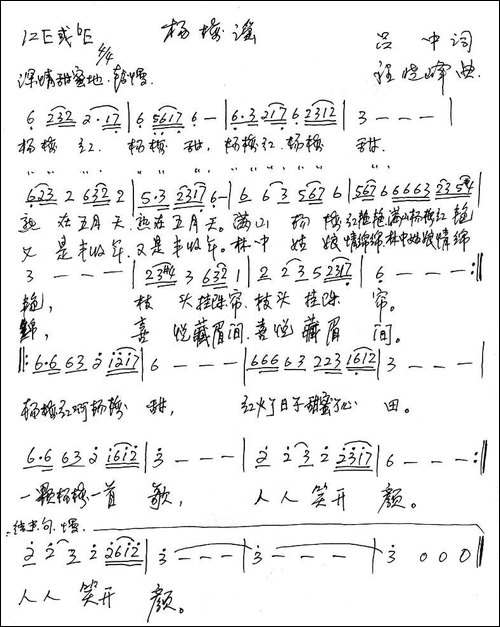 1=E或bE 4/4 杨梅谣 吕冲词
深情甜蜜地 稍慢 程晓峰曲
6 232 2·17 | 6 5617 6 – | 6·3 217 6 2312 | 3 – – – |
杨梅 红. 杨梅 甜, 杨梅红.杨梅 甜.
623 2 632 2 | 5·3 2317 6 – | 6 6 3 567 6 | 567 6 6 6 6 3 23 5#4 |
熟 在五月天.熟在五月天。满山 杨 梅红艳艳.满山杨梅红 艳
又 是丰收年.又是丰收年。林中 姑 娘情绵绵.林中姑娘情 绵
3 – – – | 23#4 3 632 1 | 2 2 3 5 2317 | 6 – – – :||
艳, 枝 头挂珠帘.枝头 挂珠 帘。
绵, 喜 悦藏眉间.喜悦 藏眉 间。
||: 6·6 63 2 1217 | 6 – – – | 666 63 223 1612 | 3 – – – |
杨梅红啊杨梅 甜, 红火了日子甜蜜了心 田。
6·6 63 2 1612 | 3 – – – | 2 2 3 2 2317 | 6 – – – :||
一颗杨梅一首 歌, 人人 笑开 颜。
结束句.慢.
2 2 3 2 2612 | 3 – – – | 3 – – – | 3 0 0 0 ||
人人 笑开 颜。